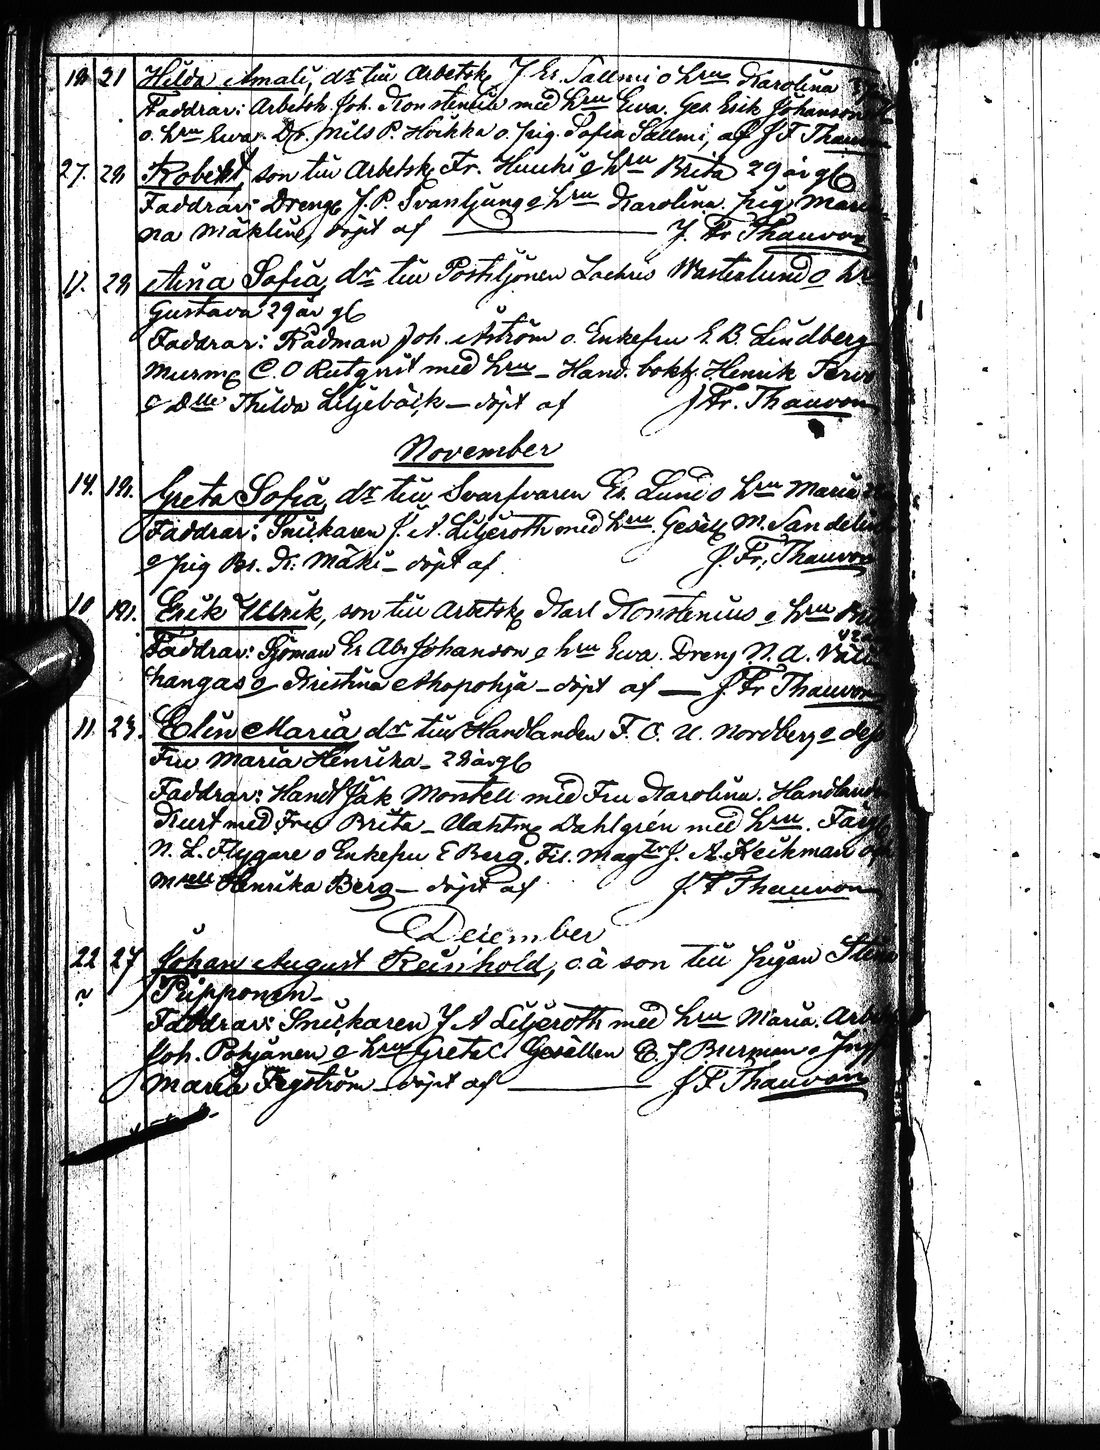 18 21 Hilda Amali, dr till Arbetsk J Er. Sallmi o hru Karolina
Faddrar: Arbetsk Joh. Konstenius med hru Ewa. Ges. Erik Johanson
o. hru Ewa. Dr. Nils P. Hoikka o. pig. Sofia Sallmi, af J F Thauvon
27. 28 Robert, son till Arbetsk Fr. Huuki o hru Brita 29 år gl
Faddrar: Dreng J. P. Svanljung o hru Karolina. pig. Maria
na Mäklin, döpt af J. Fr Thauvon
17. 28 Aina Sofia, dr till Postiljonen Zachris Westerlund o hr
Gustava 29 år gl
Faddrar: Rådman Joh. Åström o. Enkefru E. B. Lindberg
Murm C. O Rutqvist med hru - Hand. bokh. Henrik
o Dlle Thilda Liljebäck - döpt af J Fr. Thauvon
November
14. 18. Greta Sofia, dr till Svarfvaren Er. Lund o hru Maria
Faddrar: Snickaren J. A. Liljeroth med hru. Gesell M. Sandelin
o pig Br. K. Mäki - döpt af J. Fr. Thauvon
10 18. Erik Ulrik, son till Arbetsk Karl Konstenius o hru
Faddrar: Sjöman Er Abr Johanson o hru Ewa. Dreng N. A.
kangas o Kristina Ahopohja - döpt af J. Fr Thauvon
11. 23. Elin Maria dr till Handlanden F. C. U. Nordberg o dess
Fru Maria Henrika - 28 år gl
Faddrar: Handl Jak Montell med Fru Karolina. Handlanden
Kurt med Fru Brita - Vaktm Dahlgrén med hru. Färg
N. L. Flygare o Enkefru E Berg, Fil. Magtr J. A. Heikman o
Mselle Henrika Berg - döpt af J. F Thauvon
December
22 27 Johan August Reinhold, o.ä son till pigan Stina
Pripponen -
Faddrar: Snickaren J A Liljeroth med hru Maria. Arbet
Joh. Pohjanen o hru Greta C. Gesällen E. J Burman o Jungf
Maria Fegström - döpt af J F Thauvon